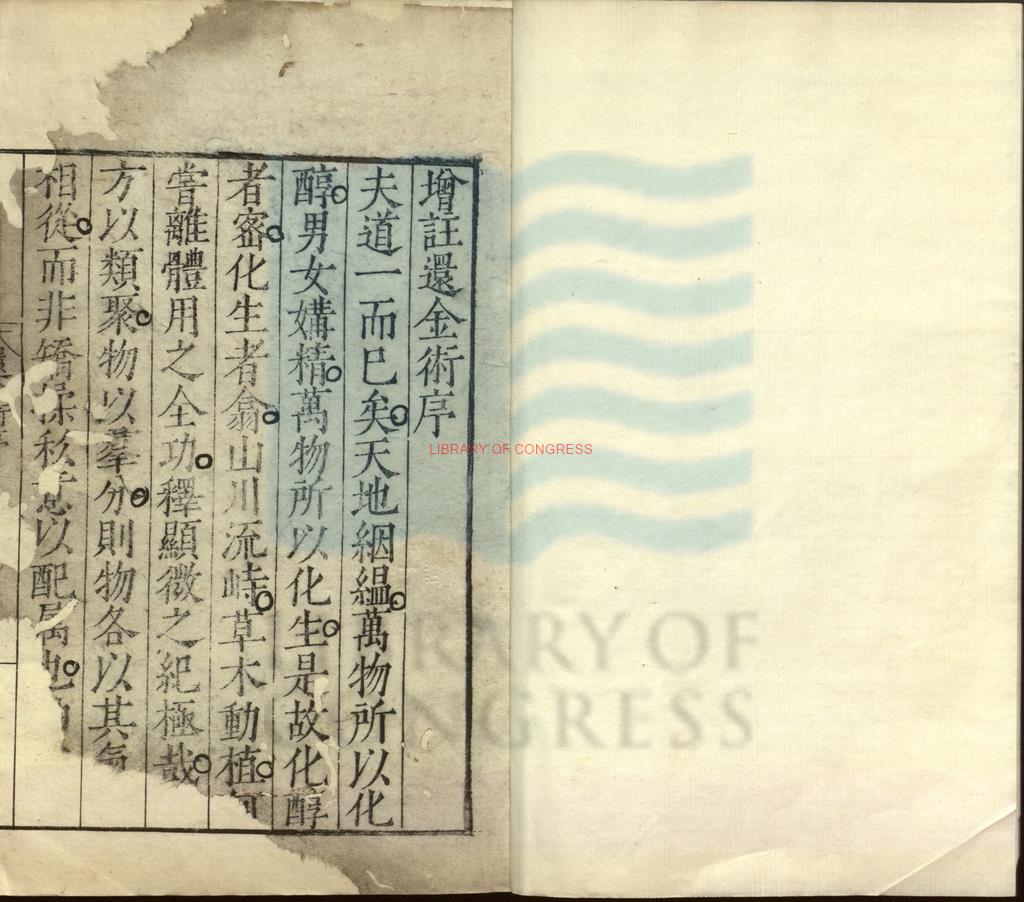 增註還金術序
夫道一而已矣天地絪緼萬物所以化
醇男女媾精萬物所以化生是故化醇
者宻化生者翕山川流峙草木動植
嘗離體用之全功釋顯微之紀極哉
方以類聚物以羣分則物各以其氣
相從而非矯揉私意以配
LIBRARY OF CONGRESS
RARY OF
NGRESS